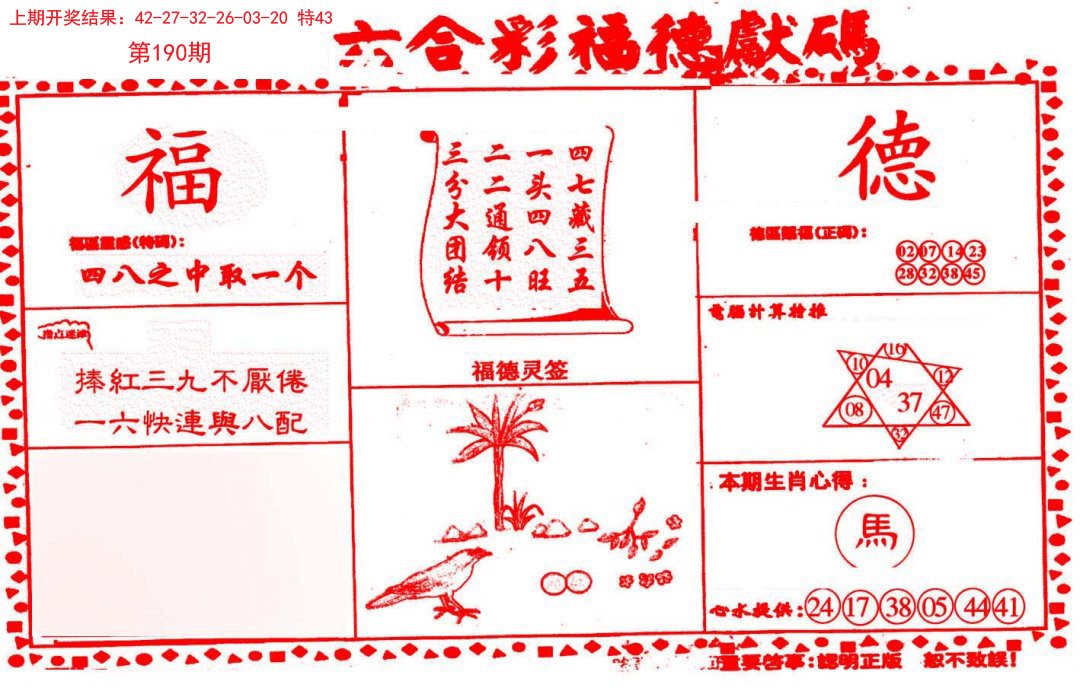 上期开奖结果：42-27-32-26-03-20 特43
第190期
六合彩福德獻碼
福
福區靈感(特碼)：
四八之中取一个
捧紅三九不厭倦
一六快連與八配
四七藏三五
一头四八旺
二二通领十
三分大团结
福德灵签
德
德區賜福(正碼)：
02 07 14 23
28 32 38 45
電腦計算特推
16
10
04
12
08
37
47
32
本期生肖心得：
馬
心水提供：24 17 38 05 44 41
重要啓事：認明正版 般不致誤！